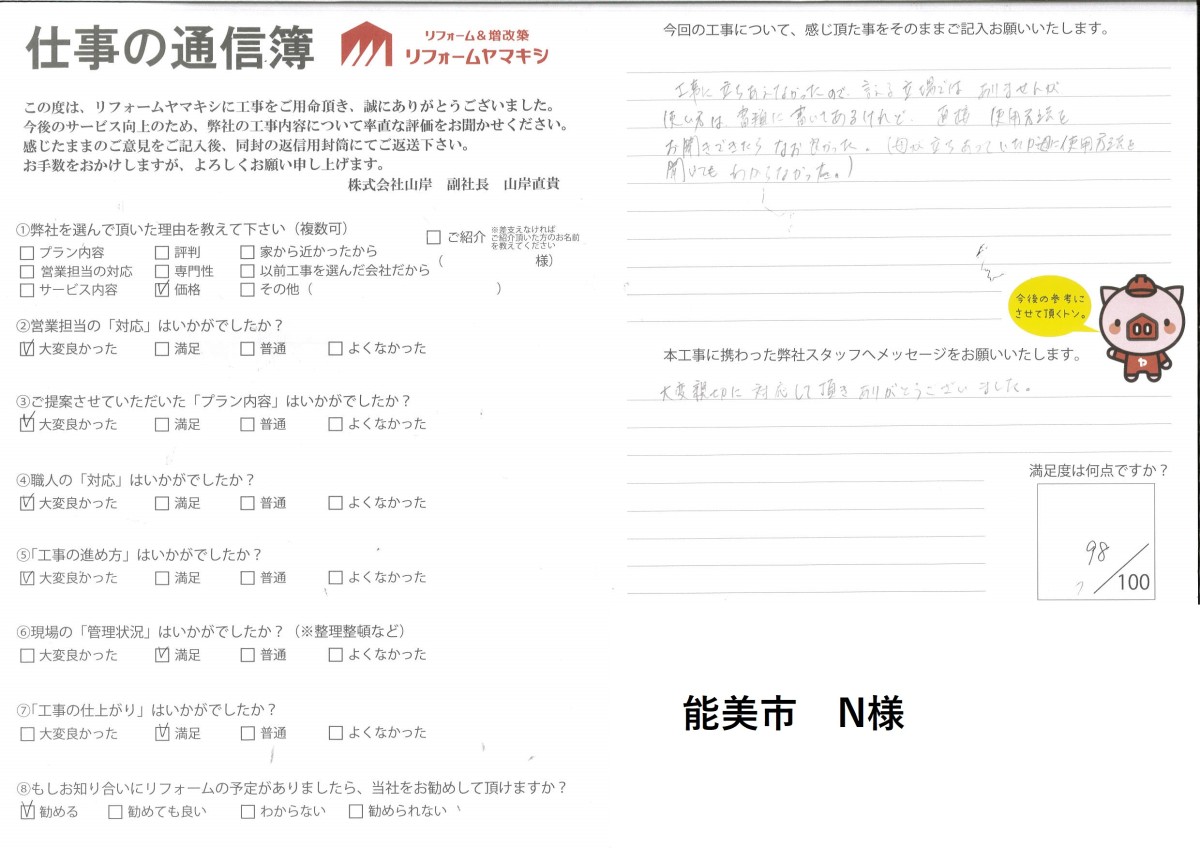 仕事の通信簿
リフォーム＆増改築
リフォームヤマキシ
この度は、リフォームヤマキシに工事をご用命頂き、誠にありがとうございました。
今後のサービス向上のため、弊社の工事内容について率直な評価をお聞かせください。
感じたままのご意見をご記入後、同封の返信用封筒にてご返送下さい。
お手数をおかけしますが、よろしくお願い申し上げます。
株式会社山岸 副社長 山岸直貴
①弊社を選んで頂いた理由を教えて下さい（複数可）
□ご紹介 ※差支えなければ
ご紹介頂いた方のお名前
を教えてください
（ 様）
□プラン内容 □評判 □家から近かったから
□営業担当の対応 □専門性 □以前工事を選んだ会社だから
□サービス内容 ☑価格 □その他（ ）
②営業担当の「対応」はいかがでしたか？
☑大変良かった □満足 □普通 □よくなかった
③ご提案させていただいた「プラン内容」はいかがでしたか？
☑大変良かった □満足 □普通 □よくなかった
④職人の「対応」はいかがでしたか？
☑大変良かった □満足 □普通 □よくなかった
⑤「工事の進め方」はいかがでしたか？
☑大変良かった □満足 □普通 □よくなかった
⑥現場の「管理状況」はいかがでしたか？（※整理整頓など）
□大変良かった ☑満足 □普通 □よくなかった
⑦「工事の仕上がり」はいかがでしたか？
□大変良かった ☑満足 □普通 □よくなかった
⑧もしお知り合いにリフォームの予定がありましたら、当社をお勧めして頂けますか？
☑勧める □勧めても良い □わからない □勧められない
今回の工事について、感じ頂た事をそのままご記入お願いいたします。
工事に立ちあえなかったので、言える立場ではありませんが
使い方は書類に書いてあるけれど、直接 使用方法を
お聞きできたら なお良かった。（母が立ちあっていた
使用方法を
聞いても わからなかった。）
今後の参考に
させて頂くトン。
ヤ
本工事に携わった弊社スタッフへメッセージをお願いいたします。
大変親切に対応して頂きありがとうございました。
満足度は何点ですか？
98／100
能美市 N様